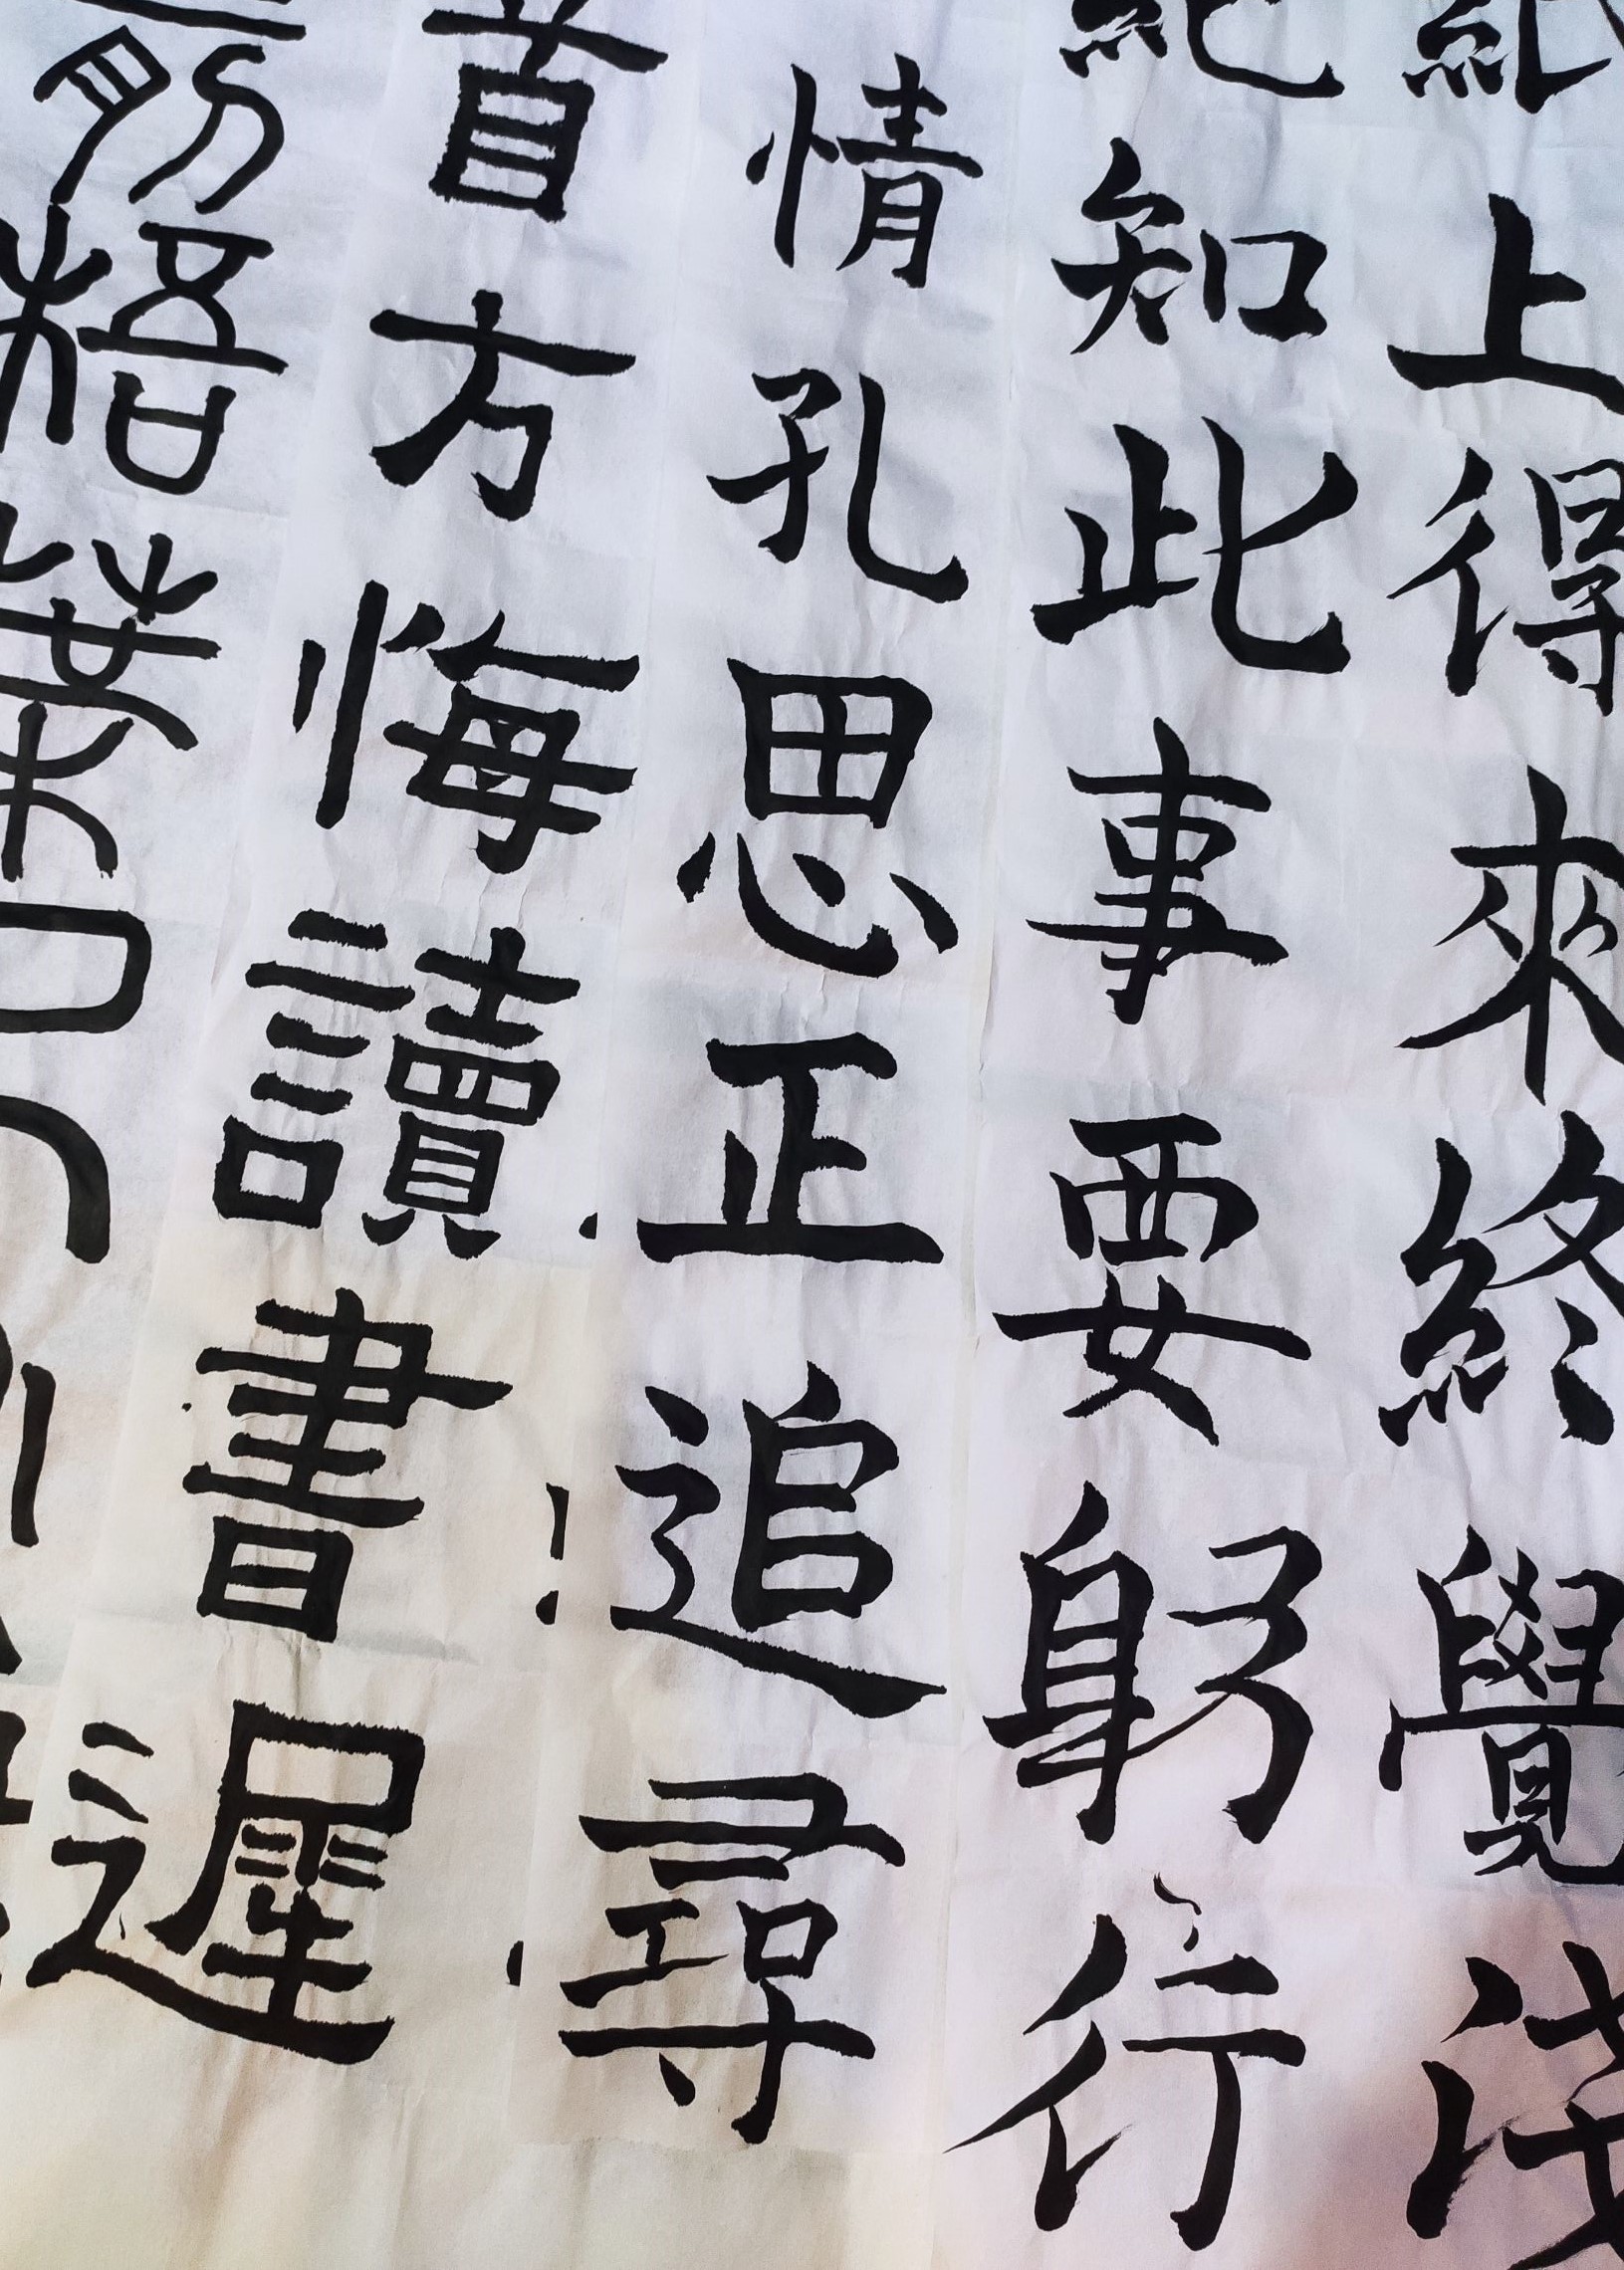 紙上得來終覺淺
絕知此事要躬行
情孔思正追尋
首方悔讀書遲
前梧葉